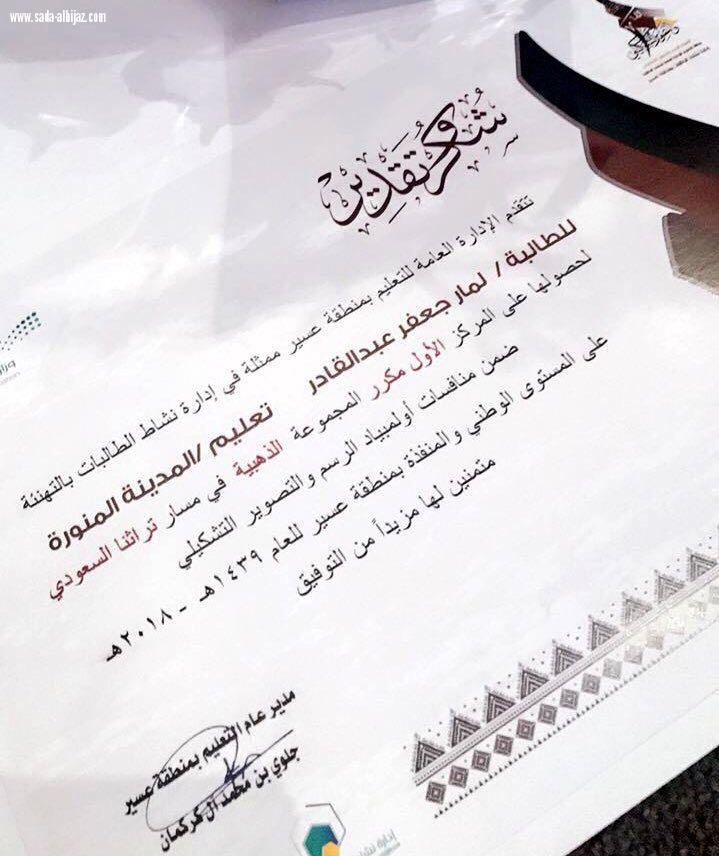 www.sada-alhijaz.com
شكر وتقدير
تتقدم الإدارة العامة للتعليم بمنطقة عسير ممثلة في إدارة نشاط الطالبات بالتهنئة
للطالبة / لمار جعفر عبدالقادر تعليم /المدينة المنورة
لحصولها على المركز الأول مكرر المجموعة الذهبية في مسار تراثنا السعودي
ضمن منافسات أولمبياد الرسم والتصوير التشكيلي
على المستوى الوطني والمنفذة بمنطقة عسير للعام ١٤٣٩هـ - ٢٠١٨هـ
متمنين لها مزيداً من التوفيق
مدير عام التعليم بمنطقة عسير
جلوي بن محمد آل كركمان